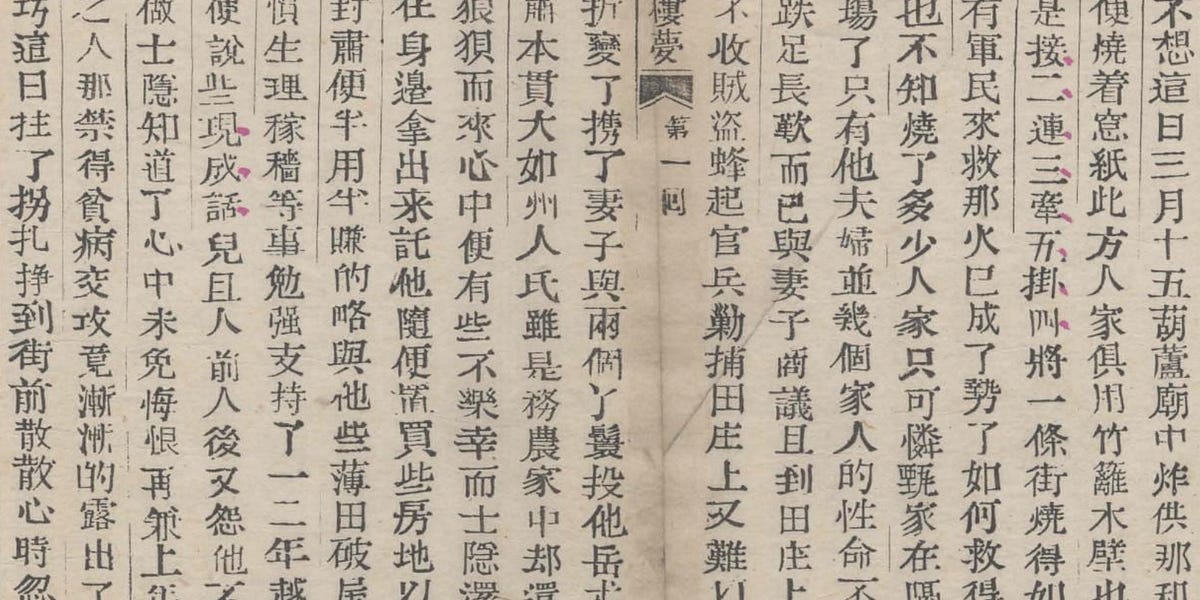 不想這日三月十五葫蘆廟中炸供那和
便燒着窓紙此方人家俱用竹籬木壁也
是接二連三牽五掛四將一條街燒得如
有軍民來救那火已成了勢了如何救得
也不知燒了多少人家只可憐甄家在隔
塲了只有他夫婦並幾個家人的性命不
跌足長歎而已與妻子商議且到田庄上
不收賊盜蜂起官兵勦捕田庄上又難以
樓夢 第一囘
折變了携了妻子與兩個丫鬟投他岳丈
肅本貫大如州人氏雖是務農家中却還
狼狽而來心中便有些不樂幸而士隱還
在身邊拿出来託他隨便置買些房地以
封肅便半用半賺的略與他些薄田破屋
慣生理稼穡等事勉强支持了一二年越
便說些現成話兒且人前人後又怨他不
做士隱知道了心中未免悔恨再兼上年
之人那禁得貧病交攻竟漸漸的露出了
巧這日拄了拐扎掙到街前散散心時忽